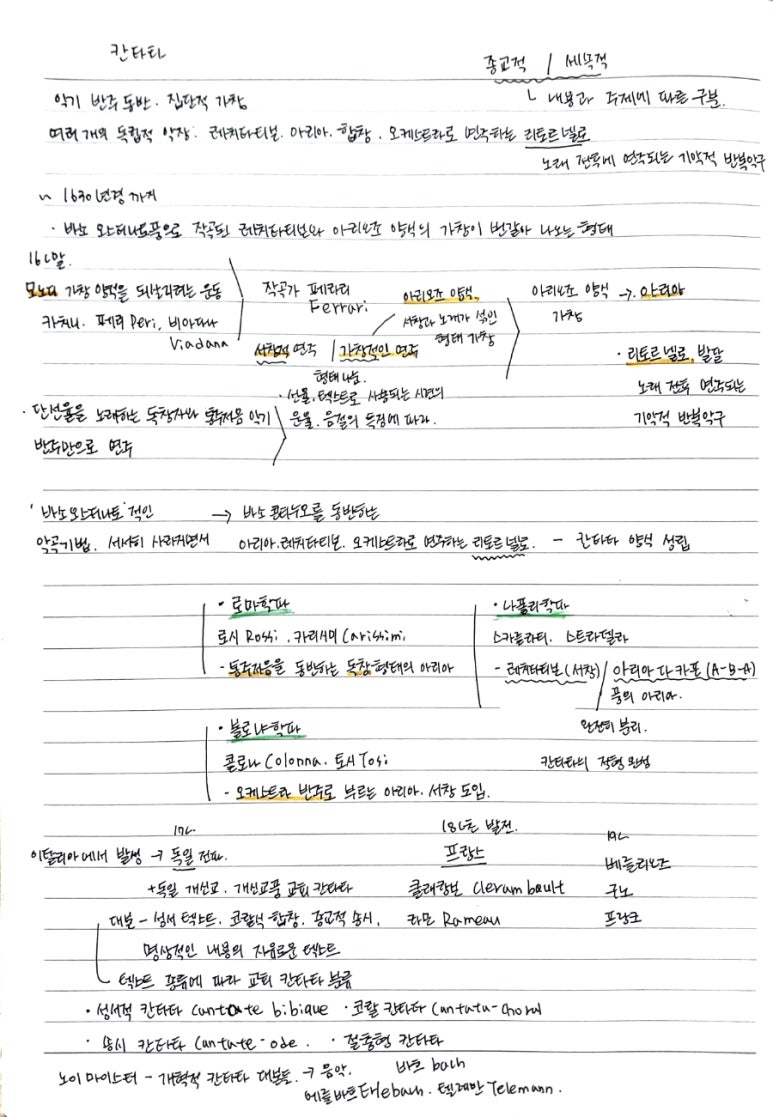 칸타타
종교적 / 세속적
ㄴ 내용과 주제에 따른 구분.
악기 반주 동반. 집단적 가창
여러 개의 독립적 악장. 레치타티보. 아리아. 합창. 오케스트라로 연주하는 리토르넬로
노래 전후에 연주되는 기악적 반복악구
~ 1630년경 까지
· 바소 오스티나토풍으로 작곡된 레치타티보와 아리오조 양식의 가창이 번갈아 나오는 형태
16C말.
모노디 가창 양식을 되살리려는 운동
카치니. 페리 Peri, 비아다나
Viadana
· 단선율을 노래하는 독창자와 통주저음 악기
반주만으로 연주
작곡가 페라리
Ferrari
서창적 연주 / 가창적인 연주
형태 나눔.
· 선율, 텍스트로 사용되는 시편의
운율. 음절의 특징에 따라.
아리오조 양식.
서창과 노래가 섞인
형태 가창
아리오조 양식 → 아리아
가창
· 리토르넬로, 발달
노래 전후 연주되는
기악적 반복악구
'바소 오스티나토' 적인 → 바소 콘티누오를 동반하는
악곡기법. 서서히 사라지면서 아리아. 레치타티보. 오케스트라로 연주하는 리토르넬로. - 칸타타 양식 성립
· 로마학파
로시 Rossi. 카리시미 Carissimi
- 통주저음을 동반하는 독창형태의 아리아
· 나폴리학파
스카를라티. 스트라델라
- 레치타티보(서창) / 아리아 다 카포 (A-B-A)
풍의 아리아.
완전히 분리.
칸타타의 전형 완성
· 볼로냐학파
콜로나 Colonna. 토시 Tosi
- 오케스트라 반주로 부르는 아리아. 서창 도입.
17C.
이탈리아에서 발생 → 독일 전파.
+독일 개신교. 개신교풍 교회 칸타타
대본 - 성서 텍스트. 코랄식 합창. 종교적 송시.
명상적인 내용의 자유로운 텍스트
텍스트 종류에 따라 교회 칸타타 분류
18C초 발전.
프랑스
클레랑보 Clerambault
라모 Rameau
19C
베를리오즈
구노
프랑크
· 성서적 칸타타 Cantate bibique · 코랄 칸타타 Cantata-Choral
· 송시 칸타타 Cantate-ode. · 절충형 칸타타
노이마이스터 - 개혁적 칸타타 대본들. → 음악. 바흐 bach
에를바흐 Erlebach. 텔레만 Telemann.